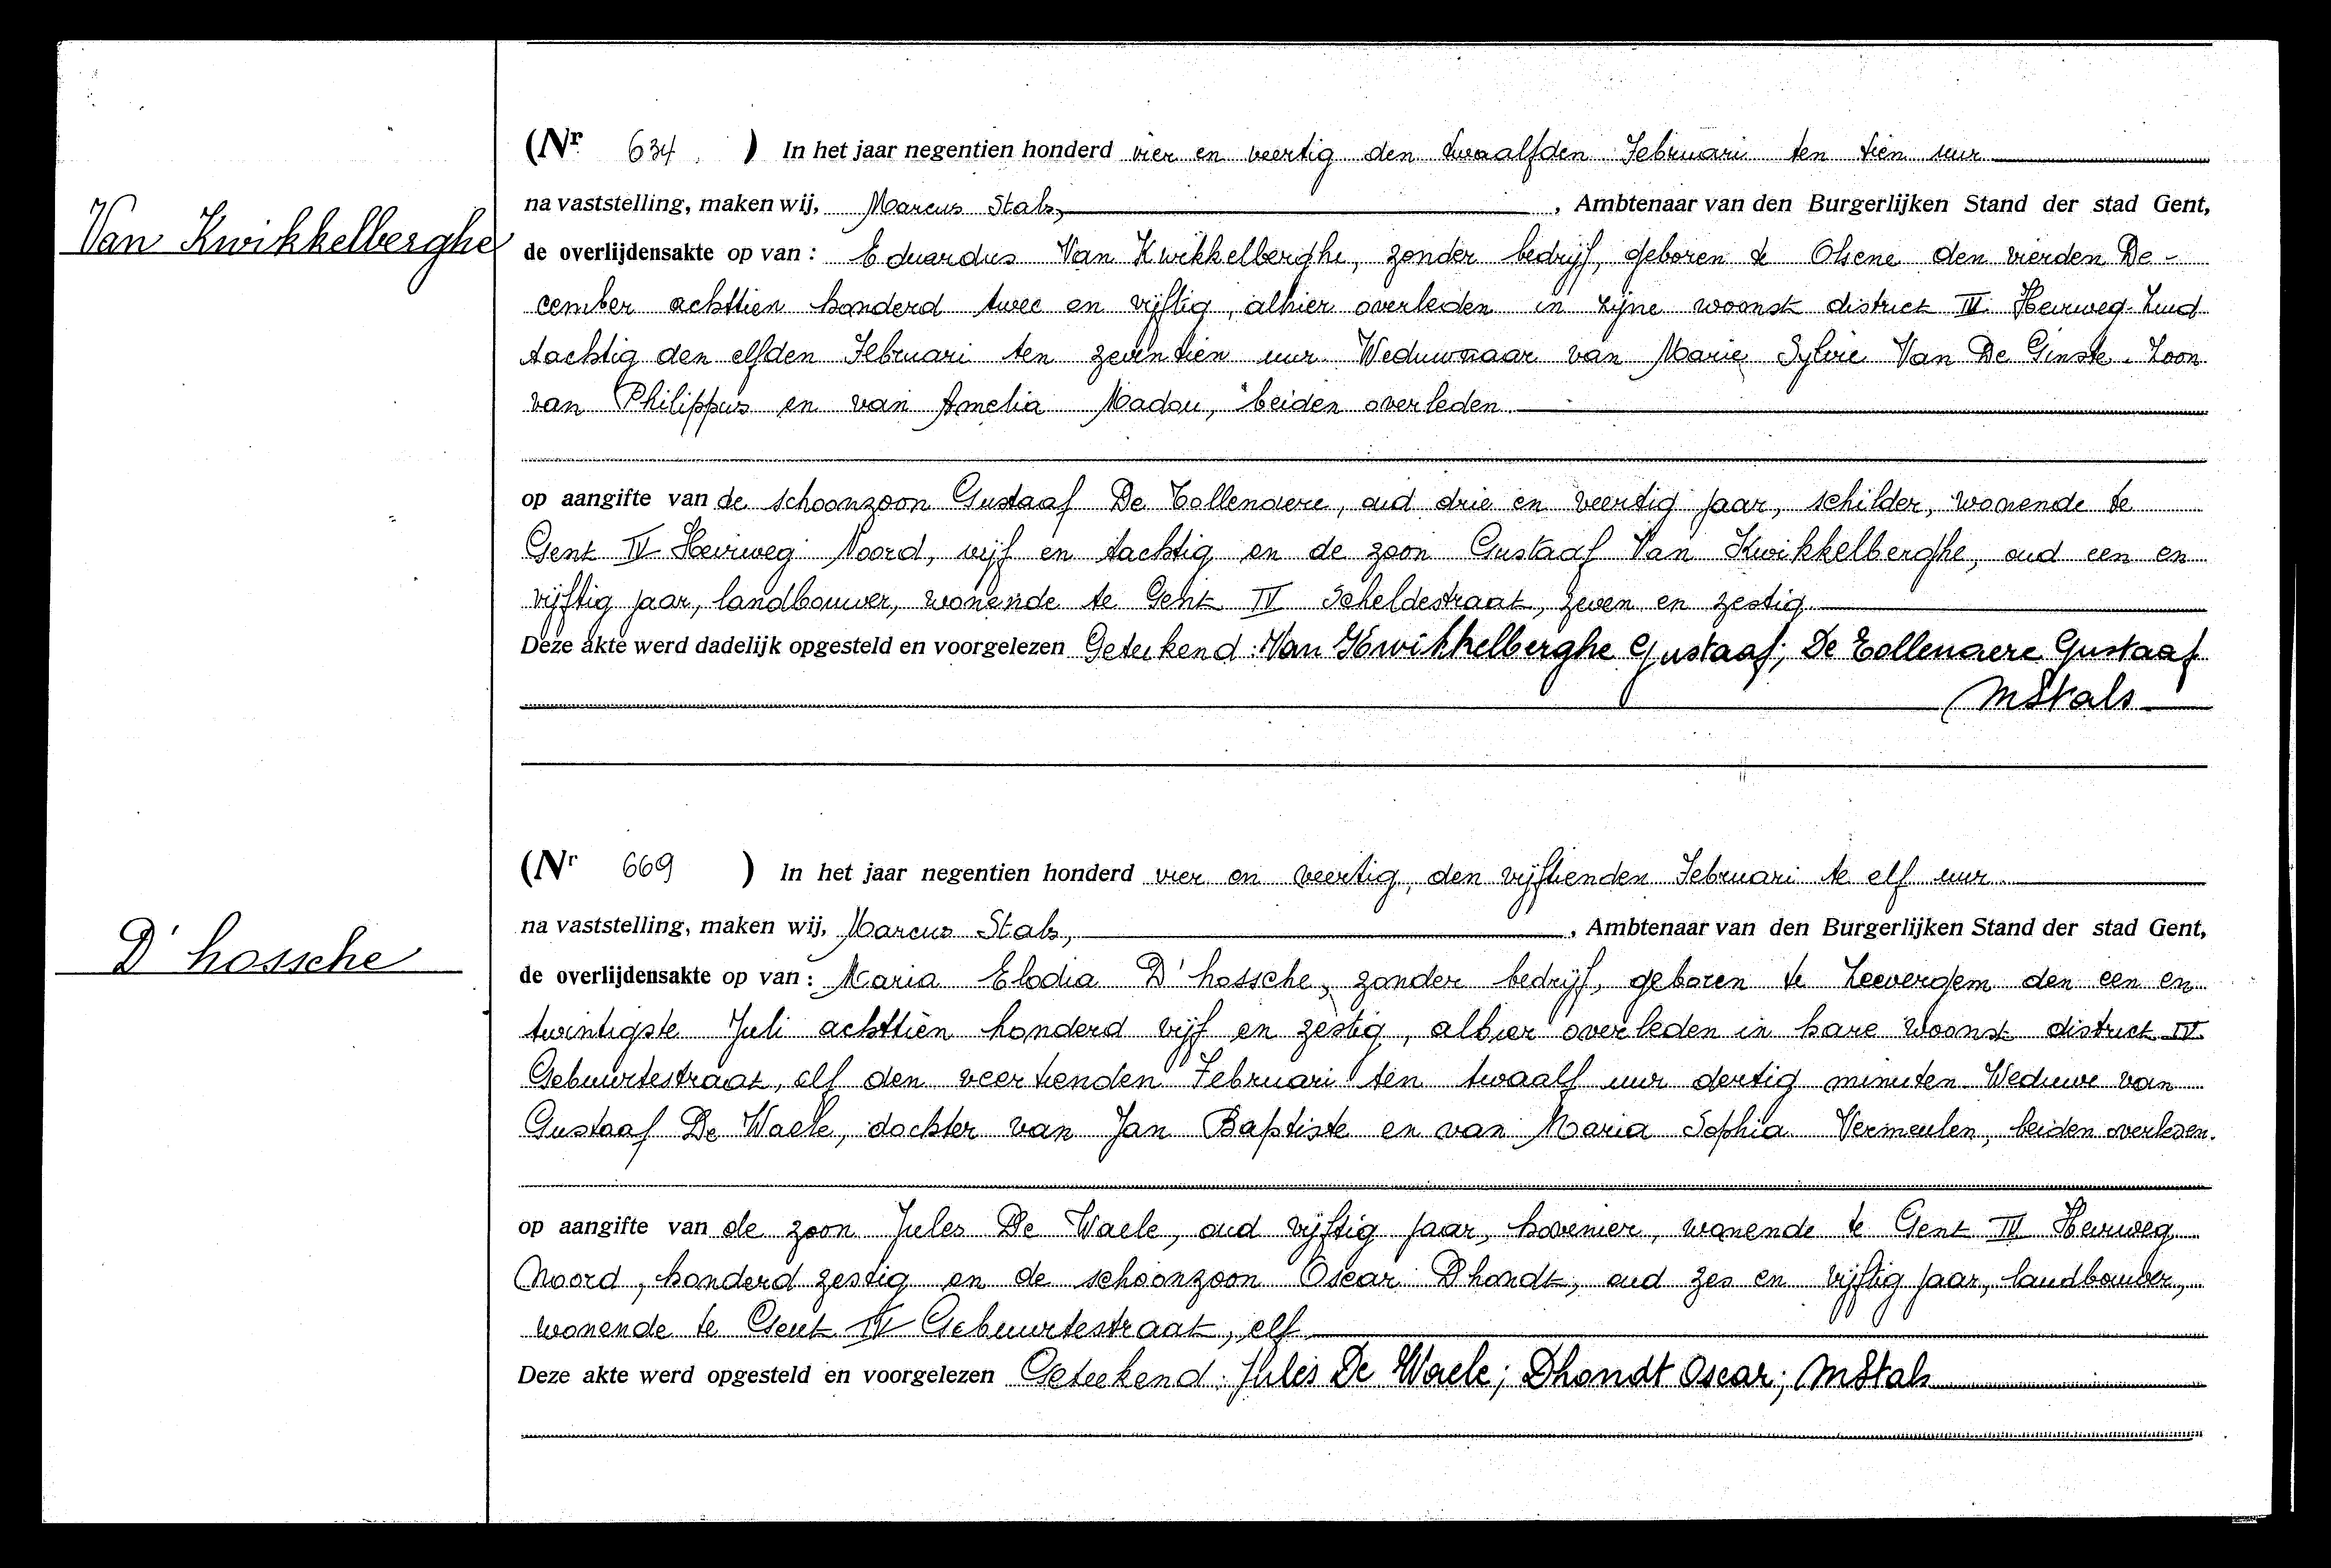 Van Kwikkelberghe
(Nr 634. ) In het jaar negentien honderd vier en veertig den twaalfden Februari ten tien uur
na vaststelling, maken wij, Marcus Stals, , Ambtenaar van den Burgerlijken Stand der stad Gent,
de overlijdensakte op van : Eduardus Van Kwikkelberghe, zonder bedrijf, geboren te Olsene den vierden De-
cember achttien honderd twee en vijftig, alhier overleden in zijne woonst district IV Heirweg-Zuid
tachtig den elfden Februari ten zeventien uur. Weduwnaar van Marie Sylvie Van De Ginste. Zoon
van Philippus en van Amelia Madou, beiden overleden.
op aangifte van de schoonzoon Gustaaf De Tollenaere, oud drie en veertig jaar, schilder, wonende te
Gent IV Heirweg Noord, vijf en tachtig en de zoon Gustaaf Van Kwikkelberghe, oud een en
vijftig jaar, landbouwer, wonende te Gent IV Scheldestraat, zeven en zestig.
Deze akte werd dadelijk opgesteld en voorgelezen Geteekend : Van Kwikkelberghe Gustaaf; De Tollenaere Gustaaf
MStals
D'hossche
(Nr 669 ) In het jaar negentien honderd vier en veertig, den vijftienden Februari te elf uur
na vaststelling, maken wij, Marcus Stals, , Ambtenaar van den Burgerlijken Stand der stad Gent,
de overlijdensakte op van : Maria Elodia D'hossche, zonder bedrijf, geboren te Zeevergem den een en
twintigste Juli achttien honderd vijf en zestig, alhier overleden in hare woonst district IV
Gebuurtestraat, elf den veertienden Februari ten twaalf uur dertig minuten. Weduwe van
Gustaaf De Waele, dochter van Jan Baptiste en van Maria Sophia Vermeulen, beiden overleden.
op aangifte van de zoon Jules De Waele, oud vijftig jaar, hovenier, wonende te Gent IV Heirweg
Noord, honderd zestig en de schoonzoon Oscar Dhondt, oud zes en vijftig jaar, landbouwer,
wonende te Gent IV Gebuurtestraat, elf
Deze akte werd opgesteld en voorgelezen Geteekend : Jules De Waele; Dhondt Oscar; MStals